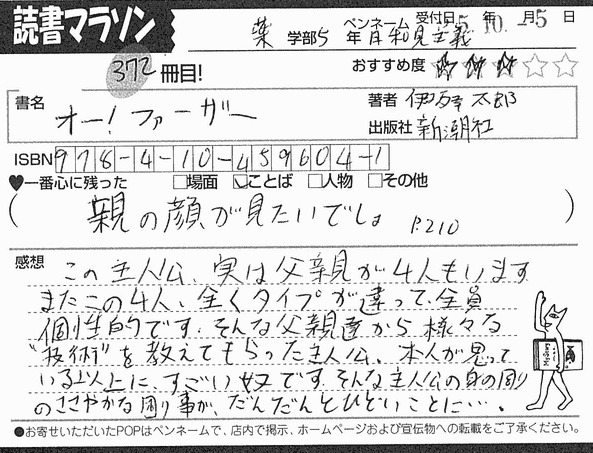 読書マラソン
ペンネーム 受付日 5年 10月 -5日
薬 学部 5 年 日和見主義
372 冊目!
おすすめ度 ★★★☆☆
書名 オー!ファーザー
著者 伊坂幸太郎
出版社 新潮社
ISBN 978-4-10-459604-1
♥一番心に残った □場面 ☑ことば □人物 □その他
( 親の顔が見たいでしょ P.210 )
感想 この主人公、実は父親が4人もいます
またこの4人、全くタイプが違って、全員
個性的です。そんな父親達から様々な
"技術"を教えてもらった主人公、本人が思って
いる以上に、すごい奴です。そんな主人公の身の周り
のささやかな困り事が、だんだんとひどいことに…。
●お寄せいただいたPOPはペンネームで、店内で掲示、ホームページおよび宣伝物への転載をご了承ください。